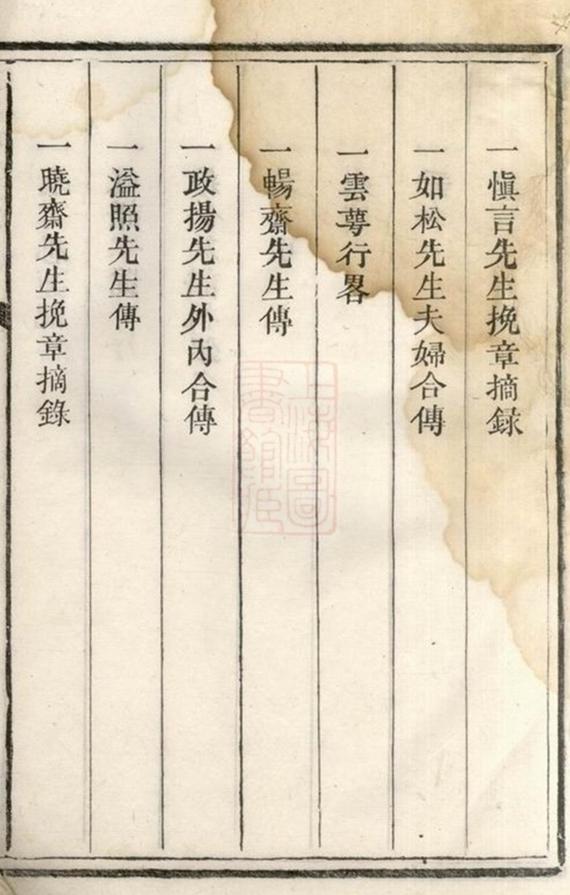 一愼言先生挽章摘録
一如松先生夫婦合傳
一雲萼行畧
一暢齋先生傳
一政揚先生外內合傳
一溢照先生傳
一曉齋先生挽章摘錄
上海圖書館藏